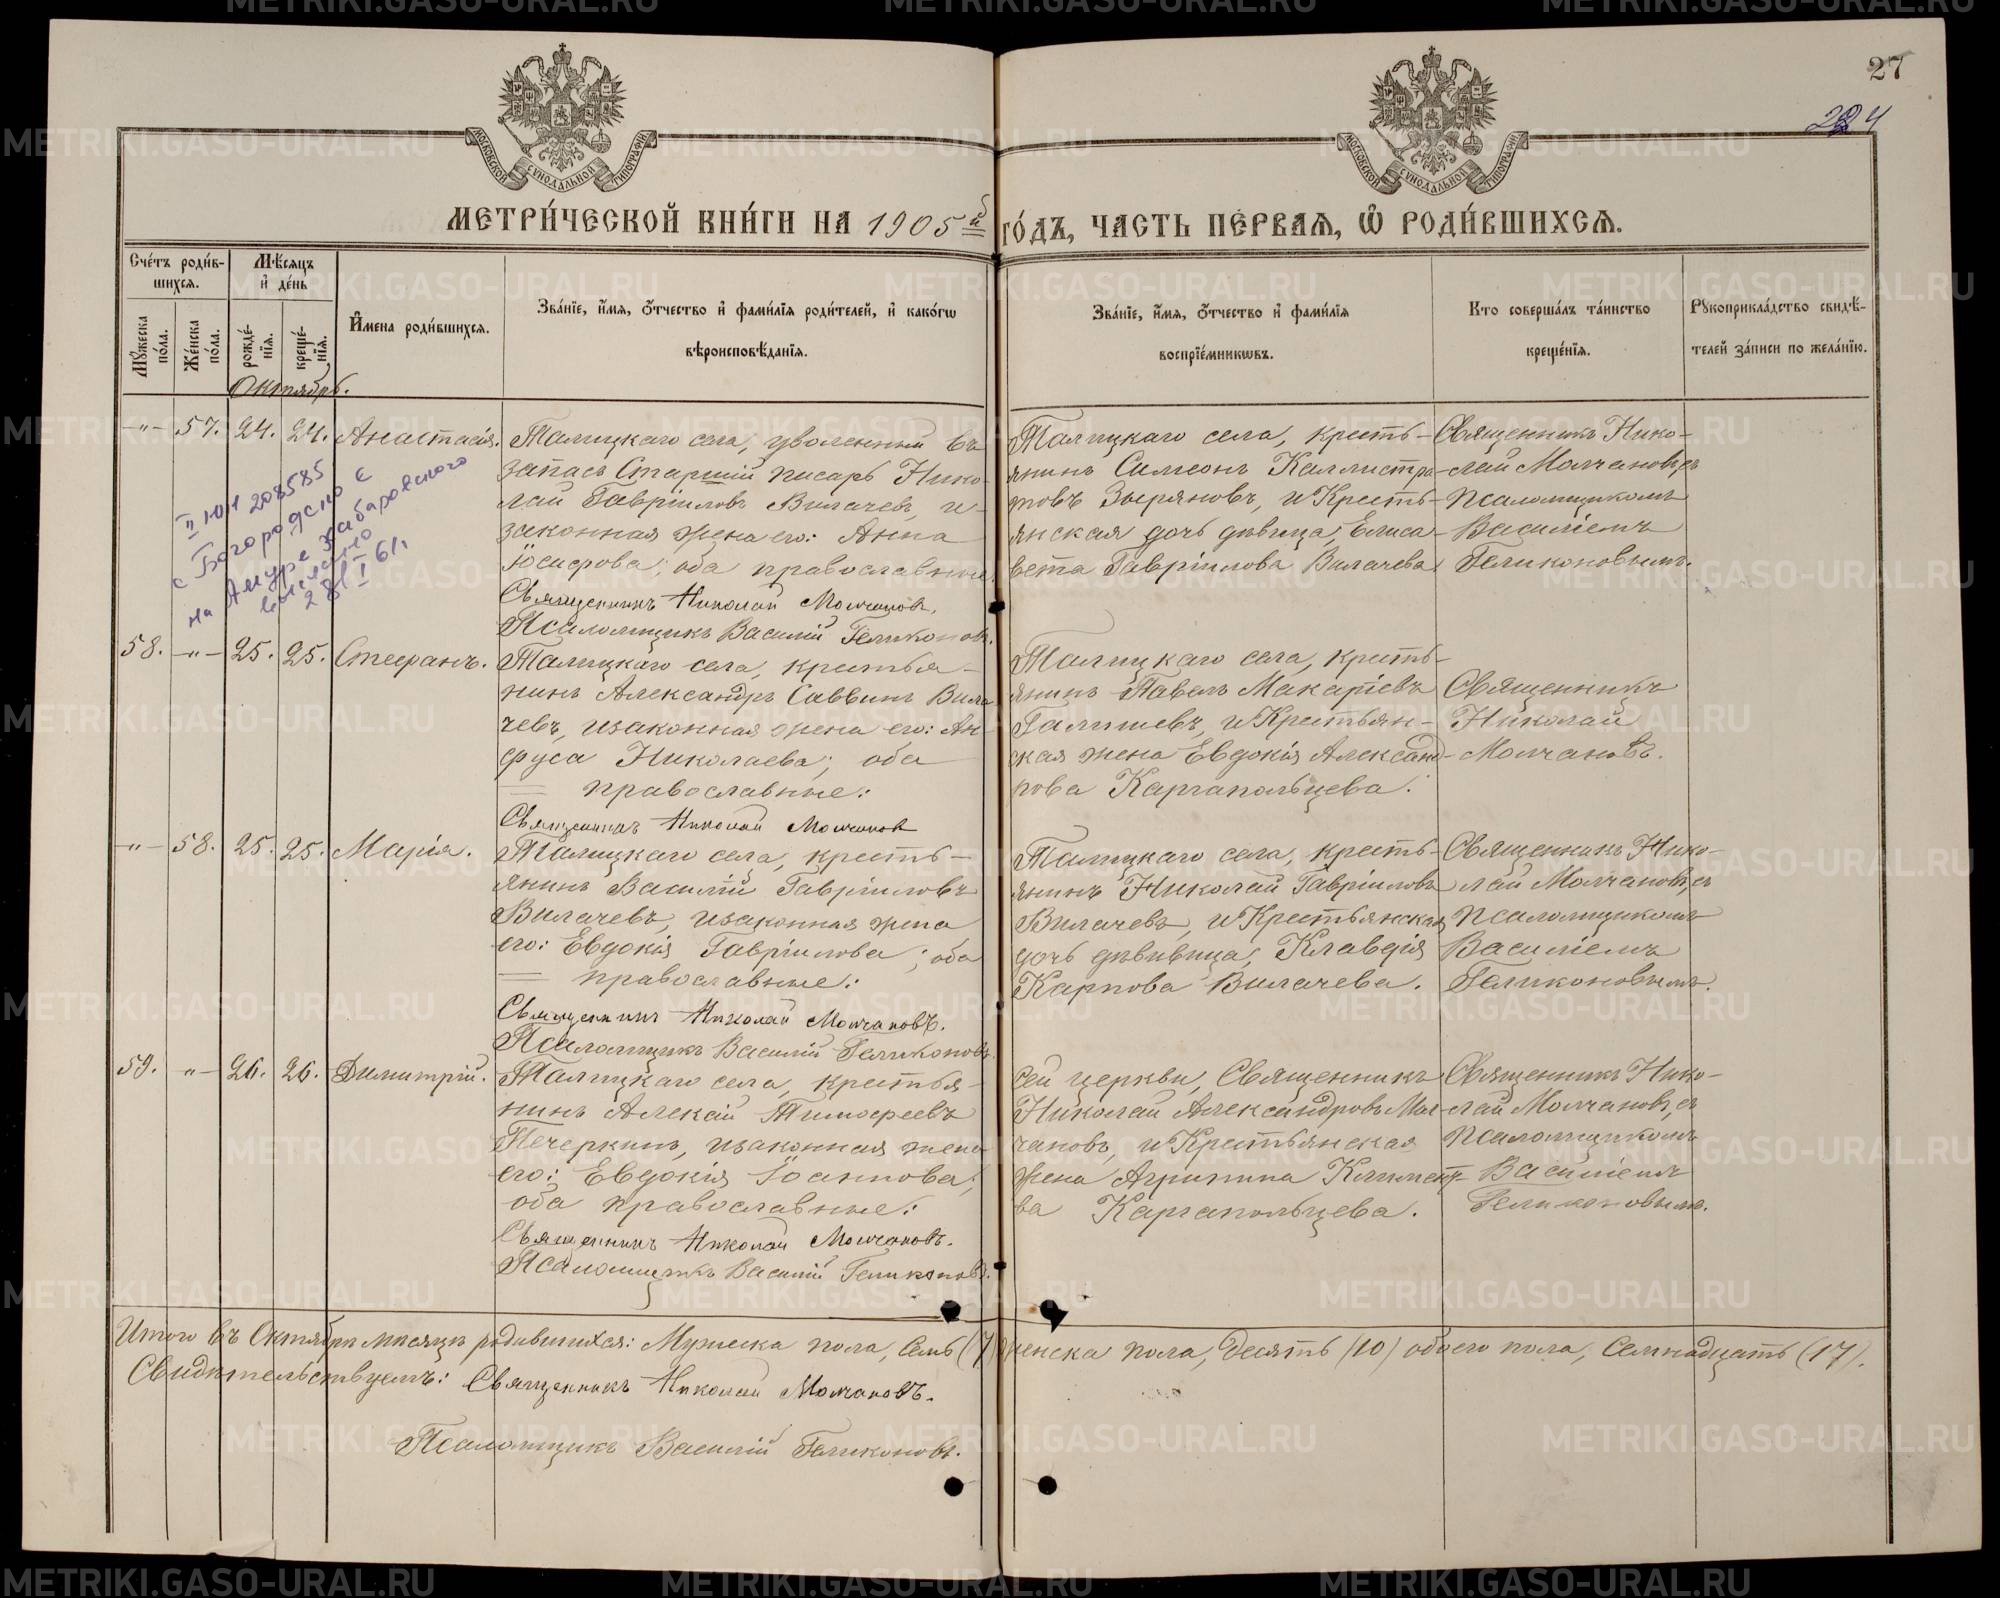 27
224
МЕТРИ́ЧЕСКОЙ КНИ́ГИ НА 1905й ГО́ДЪ, ЧАСТЬ ПЕ́РВАЯ, Ѽ РОДИ́ВШИХСЯ.
МОСКОВСКОЙ СѴНОДАЛЬНОЙ ТИПОГРАФІИ
МОСКОВСКОЙ СѴНОДАЛЬНОЙ ТИПОГРАФІИ
Сче́тъ роди́в-
шихся.
Мѣ́сяцъ
и де́нь
Мꙋ́жеска
по́ла.
Же́нска
по́ла.
рожде́-
нїя.
креще́-
нїя.
И҆мена роди́вшихся.
Зва́нїе, и҆́мя, ѻ҆́тчество и҆ фами́лїя роди́телей, и҆ како́гѡ
вѣроисповѣ́данїя.
Зва́нїе, и҆́мя, ѻ҆́тчество и҆ фами́лїя
воспрїе́мникѡвъ.
Кто соверша́лъ та́инство
креще́нїя.
Рꙋкоприкла́дство свидѣ́-
телей за́писи по жела́нїю.
Октябрь.
-"- 57. 24. 24. Анастасія.
Талицкаго села, уволенный въ
запасъ Старшій писарь Нико-
лай Гавріиловъ Вилачевъ, и
законная жена его: Анна
Іосифова; оба православные.
Священникъ Николай Молчановъ.
Псаломщикъ Василій Геликоновъ.
Талицкаго села, кресть-
янинъ Симеонъ Каллистра-
товъ Зыряновъ, и Кресть-
янская дочь дѣвица, Елиса-
вета Гавріилова Вилачева.
Священникъ Нико-
лай Молчановъ, съ
псаломщикомъ
Василіемъ
Геликоновымъ.
208585
с Богородское
на Амуре Хабаровского
61г.
58. -"- 25. 25. Стефанъ.
Талицкаго села, крестья-
нинъ Александръ Саввинъ Вила-
чевъ, и законная жена его: Ан-
фуса Николаева; оба
православные:
Священникъ Николай Молчановъ
Талицкаго села, кресть-
янинъ Павелъ Макаріевъ
Галишевъ, и Крестьян-
ская жена Евдокія Александ-
рова Каргапольцева.
Священникъ
Николай
Молчановъ.
-"- 58. 25. 25. Марія.
Талицкаго села, кресть-
янинъ Василій Гавріиловъ
Вилачевъ, и законная жена
его: Евдокія Гавріилова; оба
православные:
Священникъ Николай Молчановъ.
Псаломщикъ Василій Геликоновъ.
Талицкаго села, кресть-
янинъ Николай Гавріиловъ
Вилачевъ, и Крестьянская
дочь дѣвица, Клавдія
Карпова Вилачева.
Священникъ Нико-
лай Молчановъ, съ
псаломщикомъ
Василіемъ
Геликоновымъ.
59. "- 26. 26. Димитрій.
Талицкаго села, крестья-
нинъ Алекѣй Тимофеевъ
Печеркинъ, и законная жена
его: Евдокія Іоаннова;
оба православные:
Священникъ Николай Молчановъ.
Псаломщикъ Василій Геликоновъ.
сей церкви, Священникъ
Николай Александровъ Мол-
чановъ, и Крестьянская
жена Агрипина Климент-
ва Каргапольцева.
Священникъ Нико-
лай Молчановъ, съ
псаломщикомъ
Василіемъ
Геликоновымъ.
Итого въ Октябрѣ мѣсяцѣ родившихся: Мужеска пола, семь (7) женска пола, десять (10) обоего пола, семнадцать (17).
Свидѣтельствуемъ: Священникъ Николай Молчановъ.
Псаломщикъ Василій Геликоновъ.